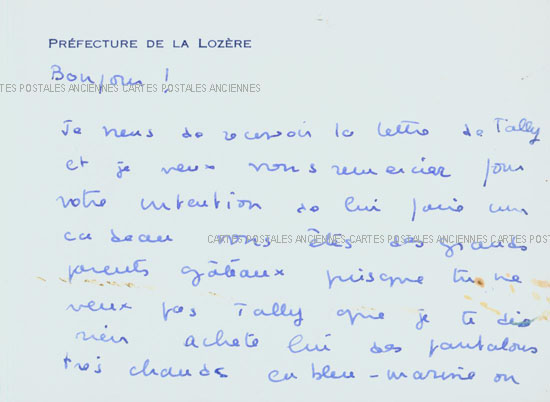 PRÉFECTURE DE LA LOZÈRE
Bonjour !
CARTES POSTALES ANCIENNES CARTES POSTALES ANCIENNES
Je viens de recevoir la lettre de Tally
et je veux vous remercier pour
votre intention de lui faire un
cadeau vous êtes des grands
CARTES POSTALES ANCIENNES CARTES POSTALES ANCIENNES
parents gâteaux puisque tu ne
veux pas Tally que je te dise
rien achete lui des pantalons
très chauds en bleu-marine ou